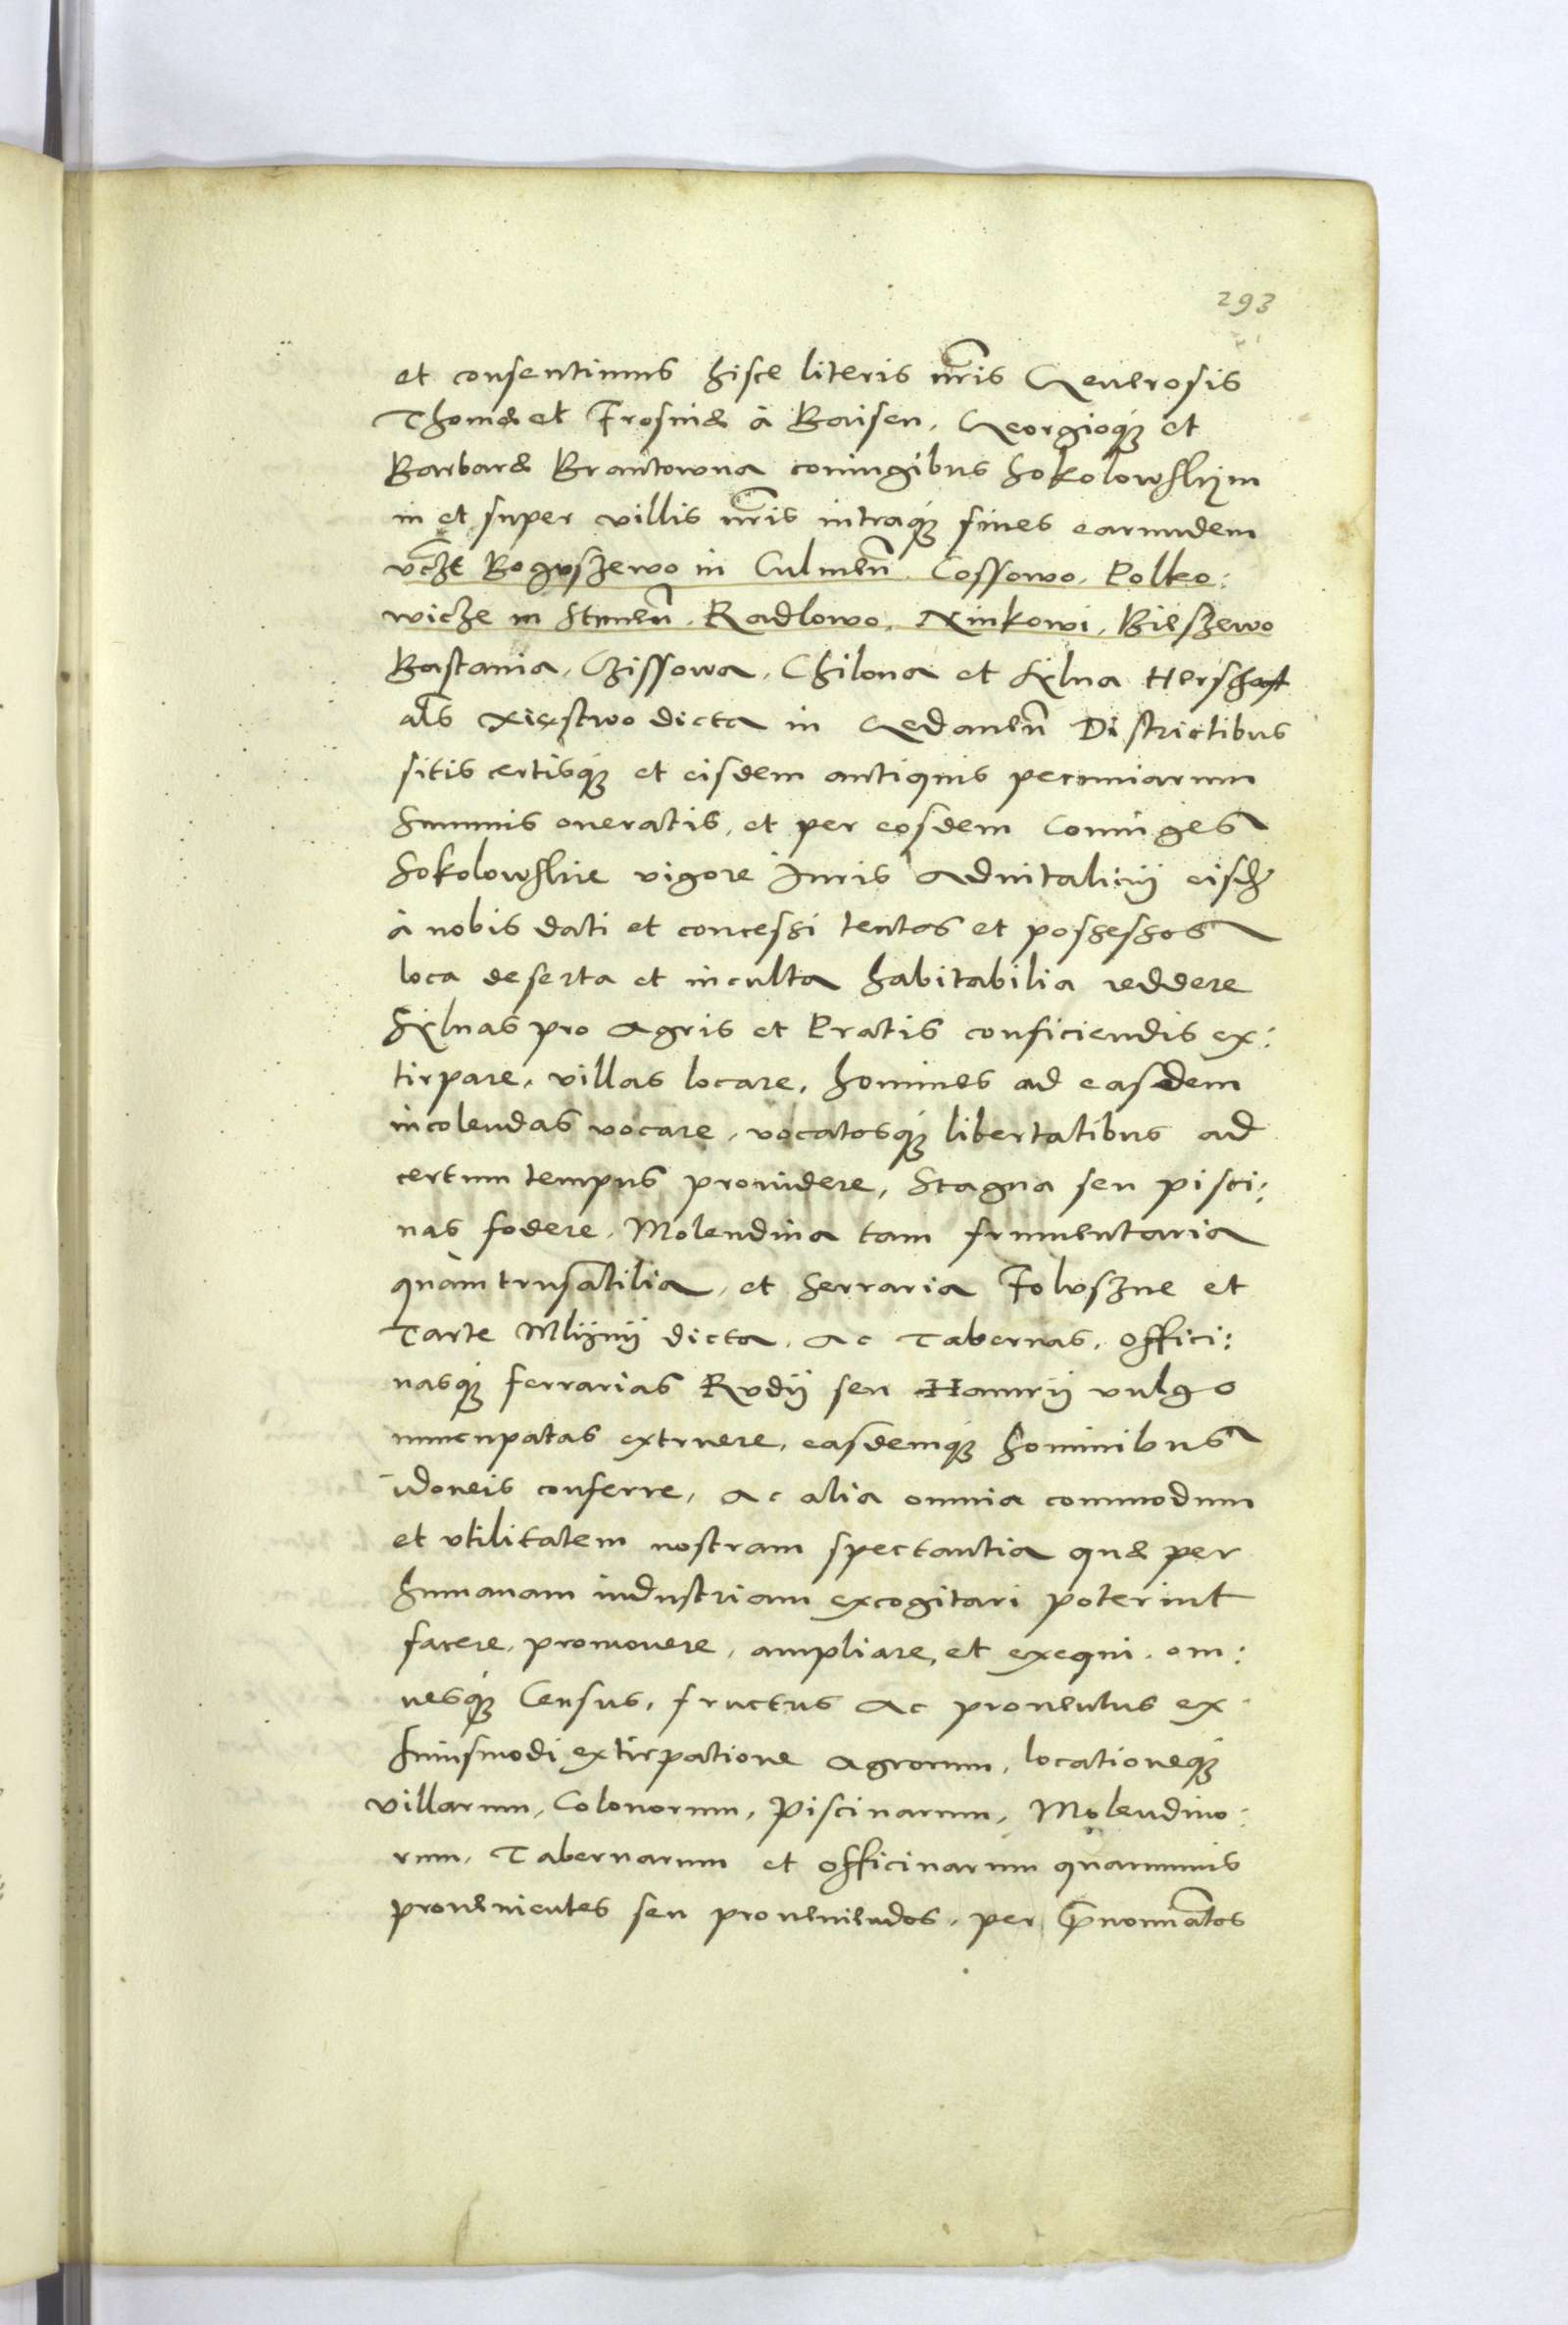 293
et consentimus hisce literis nr̃is Generosis
Thomæ et Frosinæ à Baisen, Georgioq; et
Barbaræ Brantowna coniugibus Sokolowskym
in et super villis nr̃is intraq; fines earundem
Boguszewo in Culmeñ. Cossowo, Polko:
wicze in Stumeñ. Radlowo, Ninkowi, Bieszewo
Bastania, Czissowa, Chilona et Sylua Herschaft
al̃s Xięstwo dicta in Gedaneñ Districtibus
sitis certisq; et eisdem antiquis pecuniarum
summis oneratis, et per eosdem Coniuges
Sokolowskie vigore Juris Aduitalicij eisd;
à nobis dati et concessi tentas et possessas
loca deserta et inculta habitabilia reddere
Syluas pro Agris et Pratis conficiendis ex:
tirpare, villas locare, homines ad easdem
incolendas vocare, vocatosq; libertatibus ad
certum tempus prouidere, Stagna seu pisci:
nas fodere, Molendina tam frumentaria
quàm trusatilia, et serraria Foluszne et
Tarte Mlyny dicta, Ac Tabernas, offici:
nasq; ferrarias Rudy seu Hamry vulgo
nuncupatas extruere, easdemq; hominibus
idoneis conferre, Ac alia omnia commodum
et vtilitatem nostram spectantia quæ per
humanam industriam excogitari poterint
facere, promouere, ampliare, et exequi, om:
nesq; Census, fructus Ac prouentus ex
huiusmodi extirpatione Agrorum, locationeq;
villarum, Colonorum, Piscinarum, Molendino:
rum, Tabernarum et officinarum quarumuis
prouenientes seu proueniendos, per p̃nomiatos